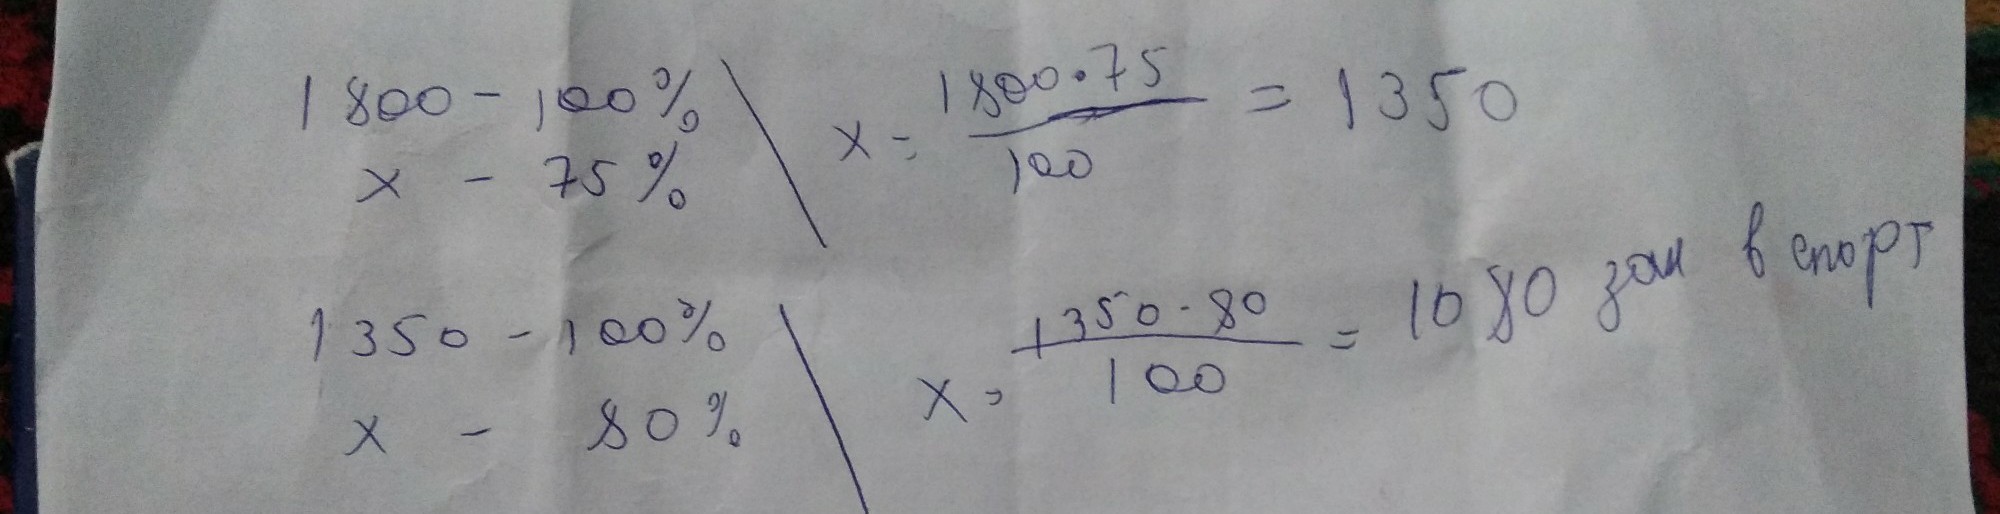 1800 - 100% \ x = 1800·75 / 100 = 1350
x - 75%
1350 - 100% \ x = 1350·80 / 100 = 1080 зан в спорт
x - 80%